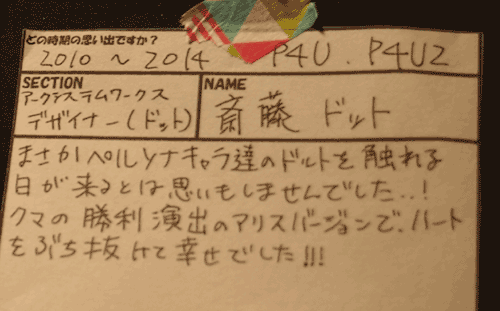 どの時期の思い出ですか?
2010 ~ 2014 P4U. P4U2
SECTION
アークシステムワークス
デザイナー(ドット)
NAME
斎藤 ドット
まさかペルソナキャラ達のドットを触れる
日が来るとは思いもしませんでした..!
クマの勝利演出のアリスバージョンで、ハート
をぶち抜けて幸せでした!!!